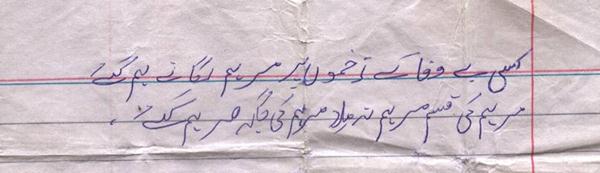 کسی بے وفا کے زخموں پر مرہم لگانے ہم گئے
مرہم کی قسم مرہم نہ ملا مرہم کی جگہ مر ہم گئے